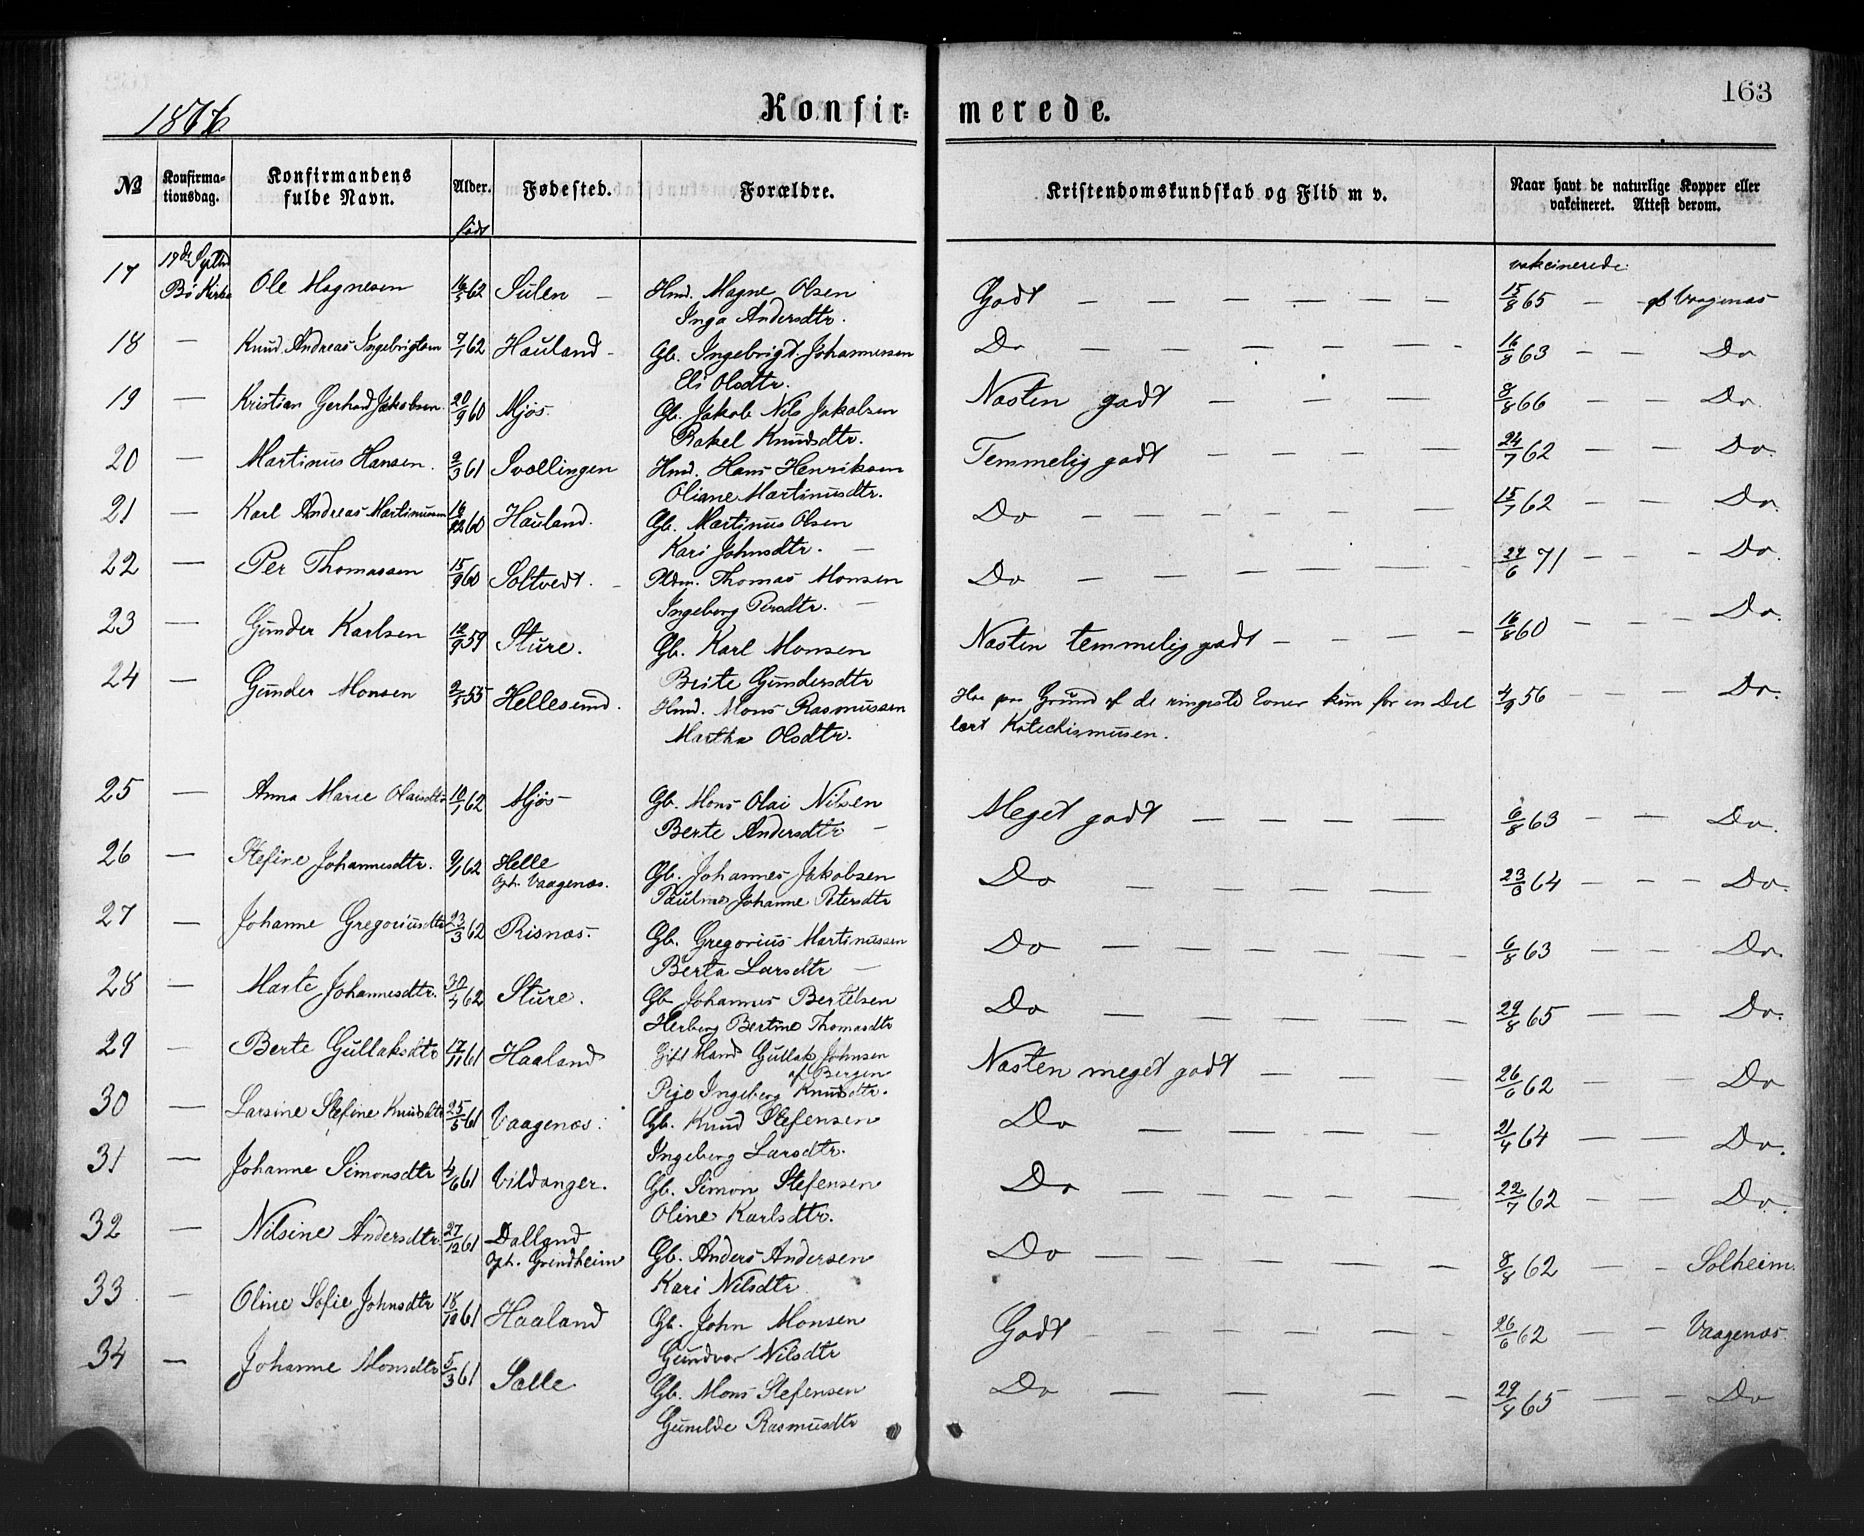 163
1876 Konfirmerede.
№ Konfirmationsdag. Konfirmandens fulde Navn. Alder. født Fødested. Forældre. Kristendomskundskab og Flid m v. Naar havt de naturlige Kopper eller vakcineret. Attest derom.
17 17de Septbr Bö Kirke Ole Magnesen 16/5 62 Sulen – Hmd. Magne Olsen Godt – – – – – – vakcinerede 15/8 65 – af Vaagenæs
Inga Andersdtr.
18 – Knud Andreas Ingebrigtsen 7/1 62 Hauland – Gb. Ingebrigt Johannessen Do – – – – – – 16/8 63 – – Do
Eli Olsdtr.
19 – Kristian Gerhard Jakobsen 20/9 60 Mjøs. Gb. Jakob Nils Jakobsen Næsten godt – – – – 8/8 66 – – Do
Rakel Knudsdtr.
20 – Martinus Hansen. 2/3 61 Svællingen Hmd. Hans Henriksen Temmelig godt – – – – – 24/7 62 – – Do.
Oliane Martinusdtr.
21 – Karl Andreas Martinussen 16/12 60 Hauland. Gb. Martinus Olsen Do – – – – – – 15/7 62 – – Do.
Kari Johnsdtr. –
22 – Per Thomassen 15/9 60 Soltvedt. – Pldm. Thomas Monsen Do – – – – – – 27/6 71 – – – Do.
Ingeborg Persdtr. –
23 – Gunder Karlsen 12/9 59 Sture. Gb. Karl Monsen Næsten temmelig godt – – – – 16/8 60 – – – Do.
Brite Gundersdtr
24 – Gunder Monsen 2/1 55 Hellesund. Hmd. Mons Rasmussen Har paa Grund af de ringeste Evner kun for en Del 4/9 56 – – – Do.
Martha Olsdtr. lært Katechismusen.
25 – Anna Marie Olaisdtr 10/1 62 Mjøs – Gb. Mons Olai Nilsen Meget godt – – – – 6/8 63 – – Do.
Berte Andersdtr –
26 – Stefine Johannesdtr. 9/1 62 Helle Gb. Johannes Jakobsen Do – – – – 23/8 64 – – – Do.
Oph. Vaagenæs. Pauline Johanne Petersdtr
27 – Johanne Gregoriusdtr 23/3 62 Risnæs. Gb. Gregorius Martinussen Do – – – – – – 6/8 63 – – Do.
Berta Larsdtr –
28 – Marte Johannesdtr. 30/4 62 Sture. Gb Johannes Bertelsen Do – – – – – – 29/8 65 – – Do.
Herborg Bertine Thomasdtr
29 – Berte Gullaksdtr 17/11 61 Haaland Gift Mand Gullak Johnsen Næsten meget godt – – – – 26/6 62 – – Do
af Bergen
Pige Ingeborg Knudsdtr.
30 – Larsine Stefine Knudsdtr 25/5 61 Vaagenæs. Gb. Knud Stefensen Do – – – – – 21/4 64 – – Do.
Ingeborg Larsdtr.
31 – Johanne Simonsdtr 4/6 61 Vildanger. Gb. Simon Stefensen Do – – – – – – 22/7 62 – – Do.
Oline Karlsdtr.
32 – Nilsine Andersdtr. 27/12 61 Dalland Gb. Anders Andersen Do – – – – – – 8/8 62 – – Solheim.
Oph. Grindheim Kari Nilsdtr
33 – Oline Sofie Johnsdtr 18/12 61 Haaland Gb. John Monsen Godt – – – – – – 26/6 62 – – Vaagenæs.
Gundvor Nilsdtr
34 – Johanne Monsdtr 5/3 61 Sælle Gb. Mons Stefensen Do – – – – – – 29/8 65 – – Do
Gunilde Rasmusdtr